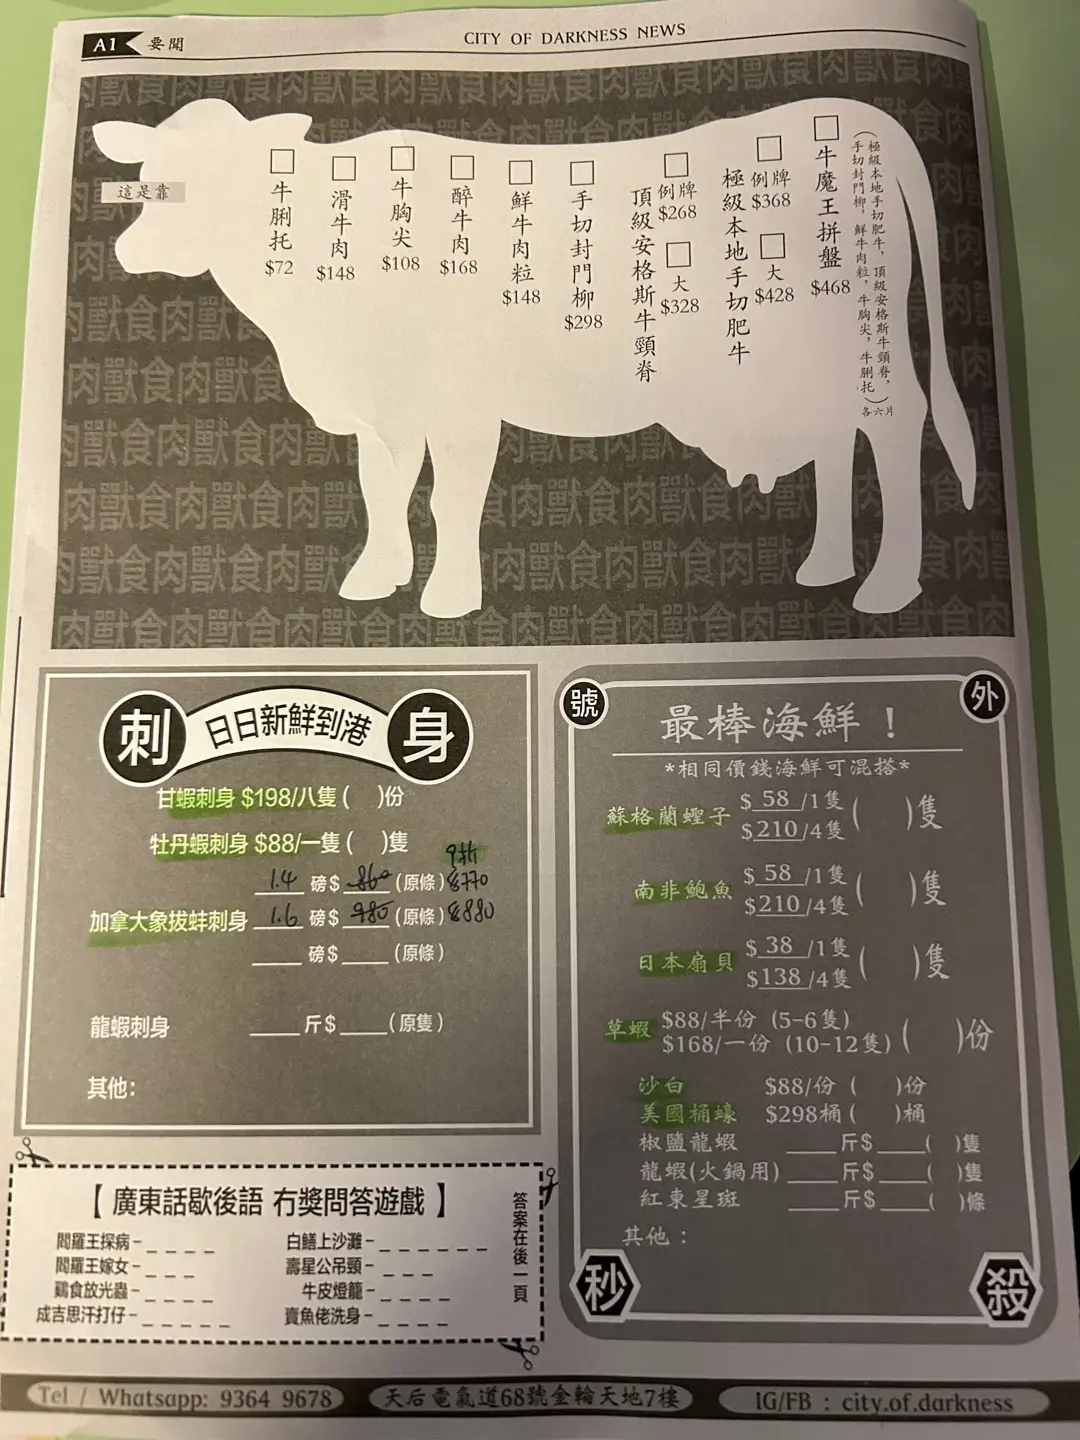 A1 要聞
CITY OF DARKNESS NEWS
這是靠
牛脷托
$72
滑牛肉
$148
牛胸尖
$108
醉牛肉
$168
鮮牛肉粒
$148
手切封門柳
$298
頂級安格斯牛頸脊
例牌
$268
大
$328
極級本地手切肥牛
例牌
$368
大
$428
牛魔王拼盤
$468
(極級本地手切肥牛，頂級安格斯牛頸脊，
手切封門柳，鮮牛肉粒，牛胸尖，牛脷托)
各六片
刺 日日新鮮到港 身
甘蝦刺身 $198/八隻 ( )份
牡丹蝦刺身 $88/一隻 ( )隻
9折
1.4 磅$ 860 (原條) $770
加拿大象拔蚌刺身 1.6 磅$ 980 (原條) $880
____ 磅$ ____ (原條)
龍蝦刺身 ____ 斤$ ____ (原隻)
其他：
號 外
最棒海鮮！
*相同價錢海鮮可混搭*
蘇格蘭蟶子 $ 58 /1隻 ( )隻
$210/4隻
南非鮑魚 $ 58 /1隻 ( )隻
$210/4隻
日本扇貝 $ 38 /1隻 ( )隻
$138/4隻
草蝦 $88/半份 (5-6隻)
$168/一份 (10-12隻) ( )份
沙白 $88/份 ( )份
美國桶蠔 $298桶 ( )桶
椒鹽龍蝦 ____斤$ ____( )隻
龍蝦(火鍋用) ____斤$ ____( )隻
紅東星斑 ____斤$ ____( )條
其他：
秒 殺
【 廣東話歇後語 冇獎問答遊戲 】
閻羅王探病- _ _ _ _
閻羅王嫁女- _ _ _
鷄食放光蟲- _ _ _ _
成吉思汗打仔- _ _ _ _ _
白鱔上沙灘- _ _ _ _ _ _
壽星公吊頸- _ _ _
牛皮燈籠- _ _ _ _
賣魚佬洗身- _ _ _ _
答案在後一頁
Tel / Whatsapp: 9364 9678
天后電氣道68號金輪天地7樓
IG/FB : city.of.darkness